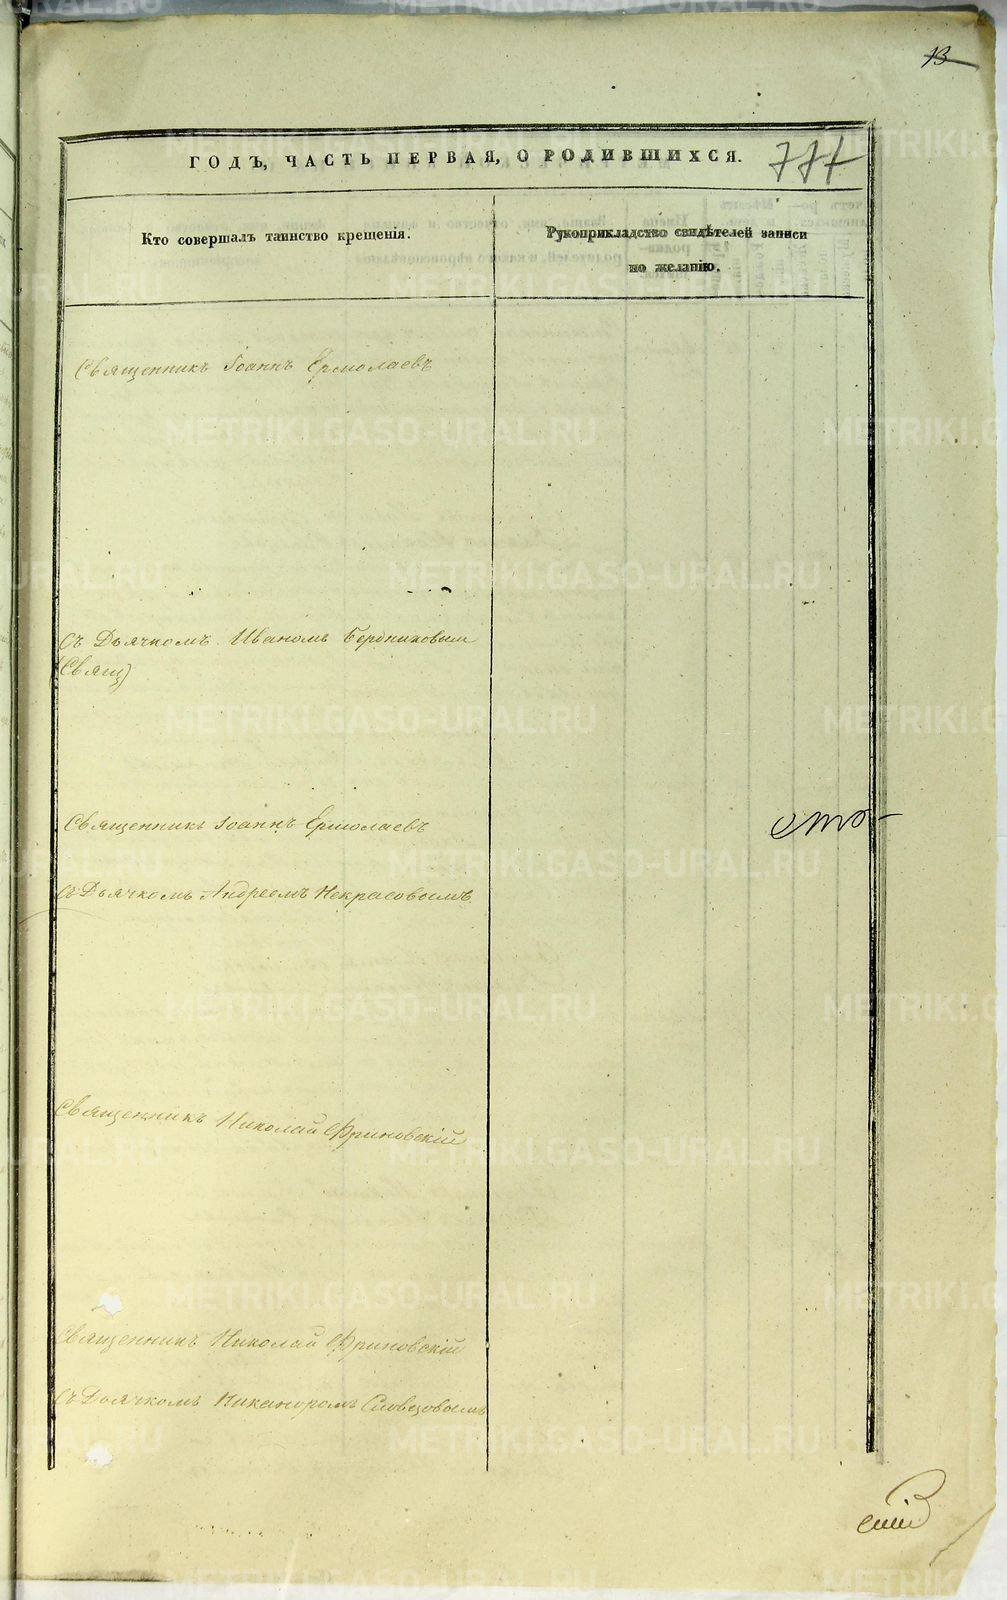 13
ГОДЪ, ЧАСТЬ ПЕРВАЯ, О РОДИВШИХСЯ.
777
Кто совершалъ таинство крещенія.
Рукоприкладство свидѣтелей записи
по желанію.
Священникъ Іоаннъ Ермолаевъ
Съ Дьячкомъ Иваномъ Бердниковым
(Свящ)
Священникъ Іоаннъ Ермолаевъ
сто
Съ Дьячкомъ Андреемъ Некрасовымъ
Священникъ Николай Фриновскій
Священникъ Николай Фриновскій
Съ Дьячкомъ Никаноромъ Словцовымъ
METRIKI.GASO-URAL.RU